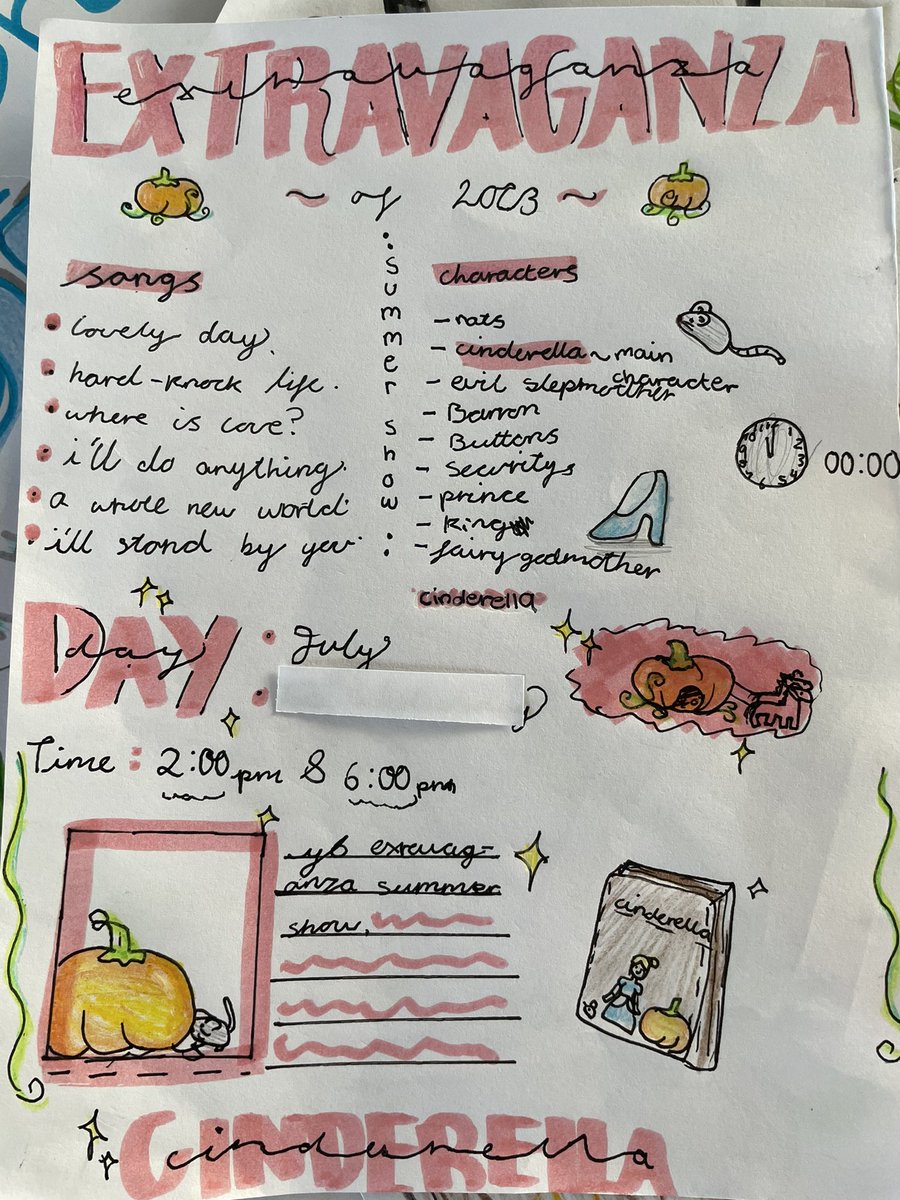 EXTRAVAGANZA
extravaganza
~ of 2023 ~
: summer show :
songs
• lovely day.
• hard-knock life.
• where is love?
• i'll do anything.
• a whole new world.
• i'll stand by you.
characters
- rats
- cinderella ~ main character
- evil stepmother
- Barron
- Buttons
- securitys
- prince
- king
- fairy godmother
cinderella
00:00
DAY :
day
July
Time : 2:00 pm & 6:00 pm
y6 extravag-
anza summer
show.
cinderella
CINDERELLA
cinderella